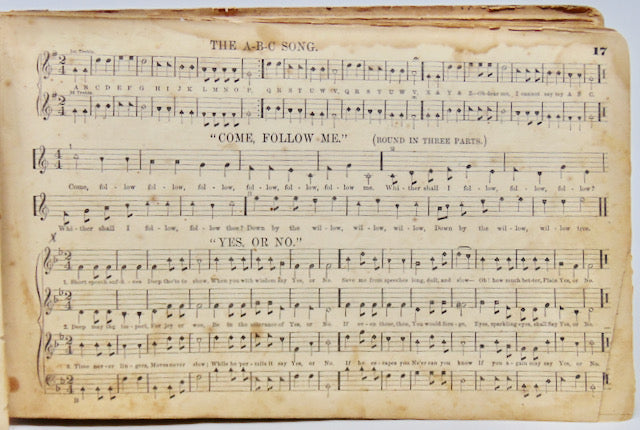 THE A-B-C SONG.
17
1st Treble.
A B C D E F G H I J K L M N O P, Q R S T U W V, Q R S T U W V, X & Y & Z. Oh dear me, I cannot say my A B C.
2d Treble.
"COME, FOLLOW ME." (ROUND IN THREE PARTS.)
Come, fol - low fol - low, fol - low, fol - low, fol - low, fol - low me. Whi - ther shall I fol - low, fol - low, fol - low?
Whi - ther shall I fol - low, fol - low thee? Down by the wil - low, wil - low, wil - low, Down by the wil - low, wil - low tree.
"YES, OR NO."
1. Short speech suf - fi - ces Deep tho'ts to show, When you with wisdom say Yes, or No. Save me from speeches long, dull, and slow— Oh! how much bet - ter, Plain Yes, or No.
2. Deep may they im - port, For joy or woe, Be in the utterance of Yes, or No. If ev - er those, thou, You would fore - go, Eyes, sparkling eyes, shall Say Yes, or No.
3. Time nev - er lin - gers, Moves never slow; While he per - mits it say Yes, or No. If he es - capes you Ne'er can you know If you a - gain may say Yes, or No.